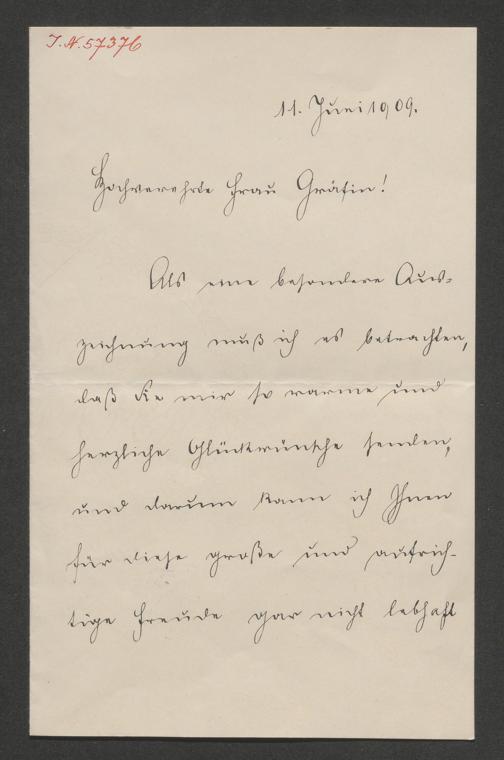 I.N.57376
11. Juni 1909.
Hochverehrte Frau Gräfin!
Als eine besondere Aus-
zeichnung muß ich es betrachten,
daß Sie mir so warme und
herzliche Glückwünsche senden,
und darum kann ich Ihnen
für diese große und aufrich-
tige Freude gar nicht lebhaft